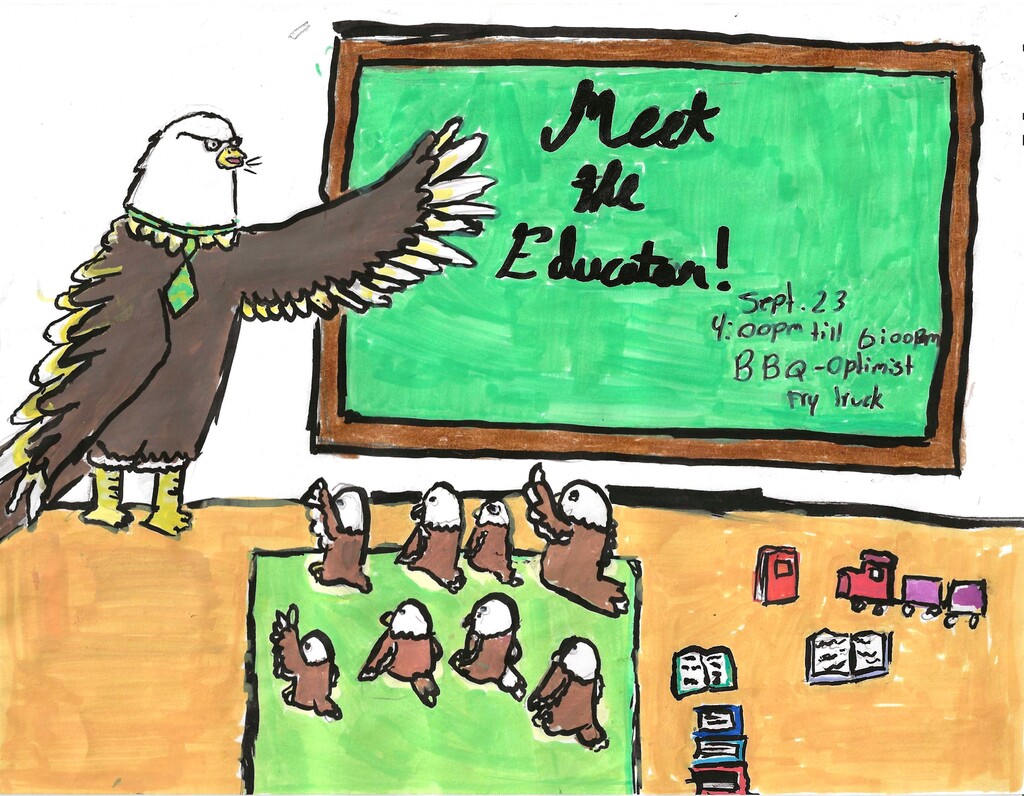 Meet
the
Educators!
Sept. 23
4:00pm till 6:00pm
BBQ - Optimist
Fry truck